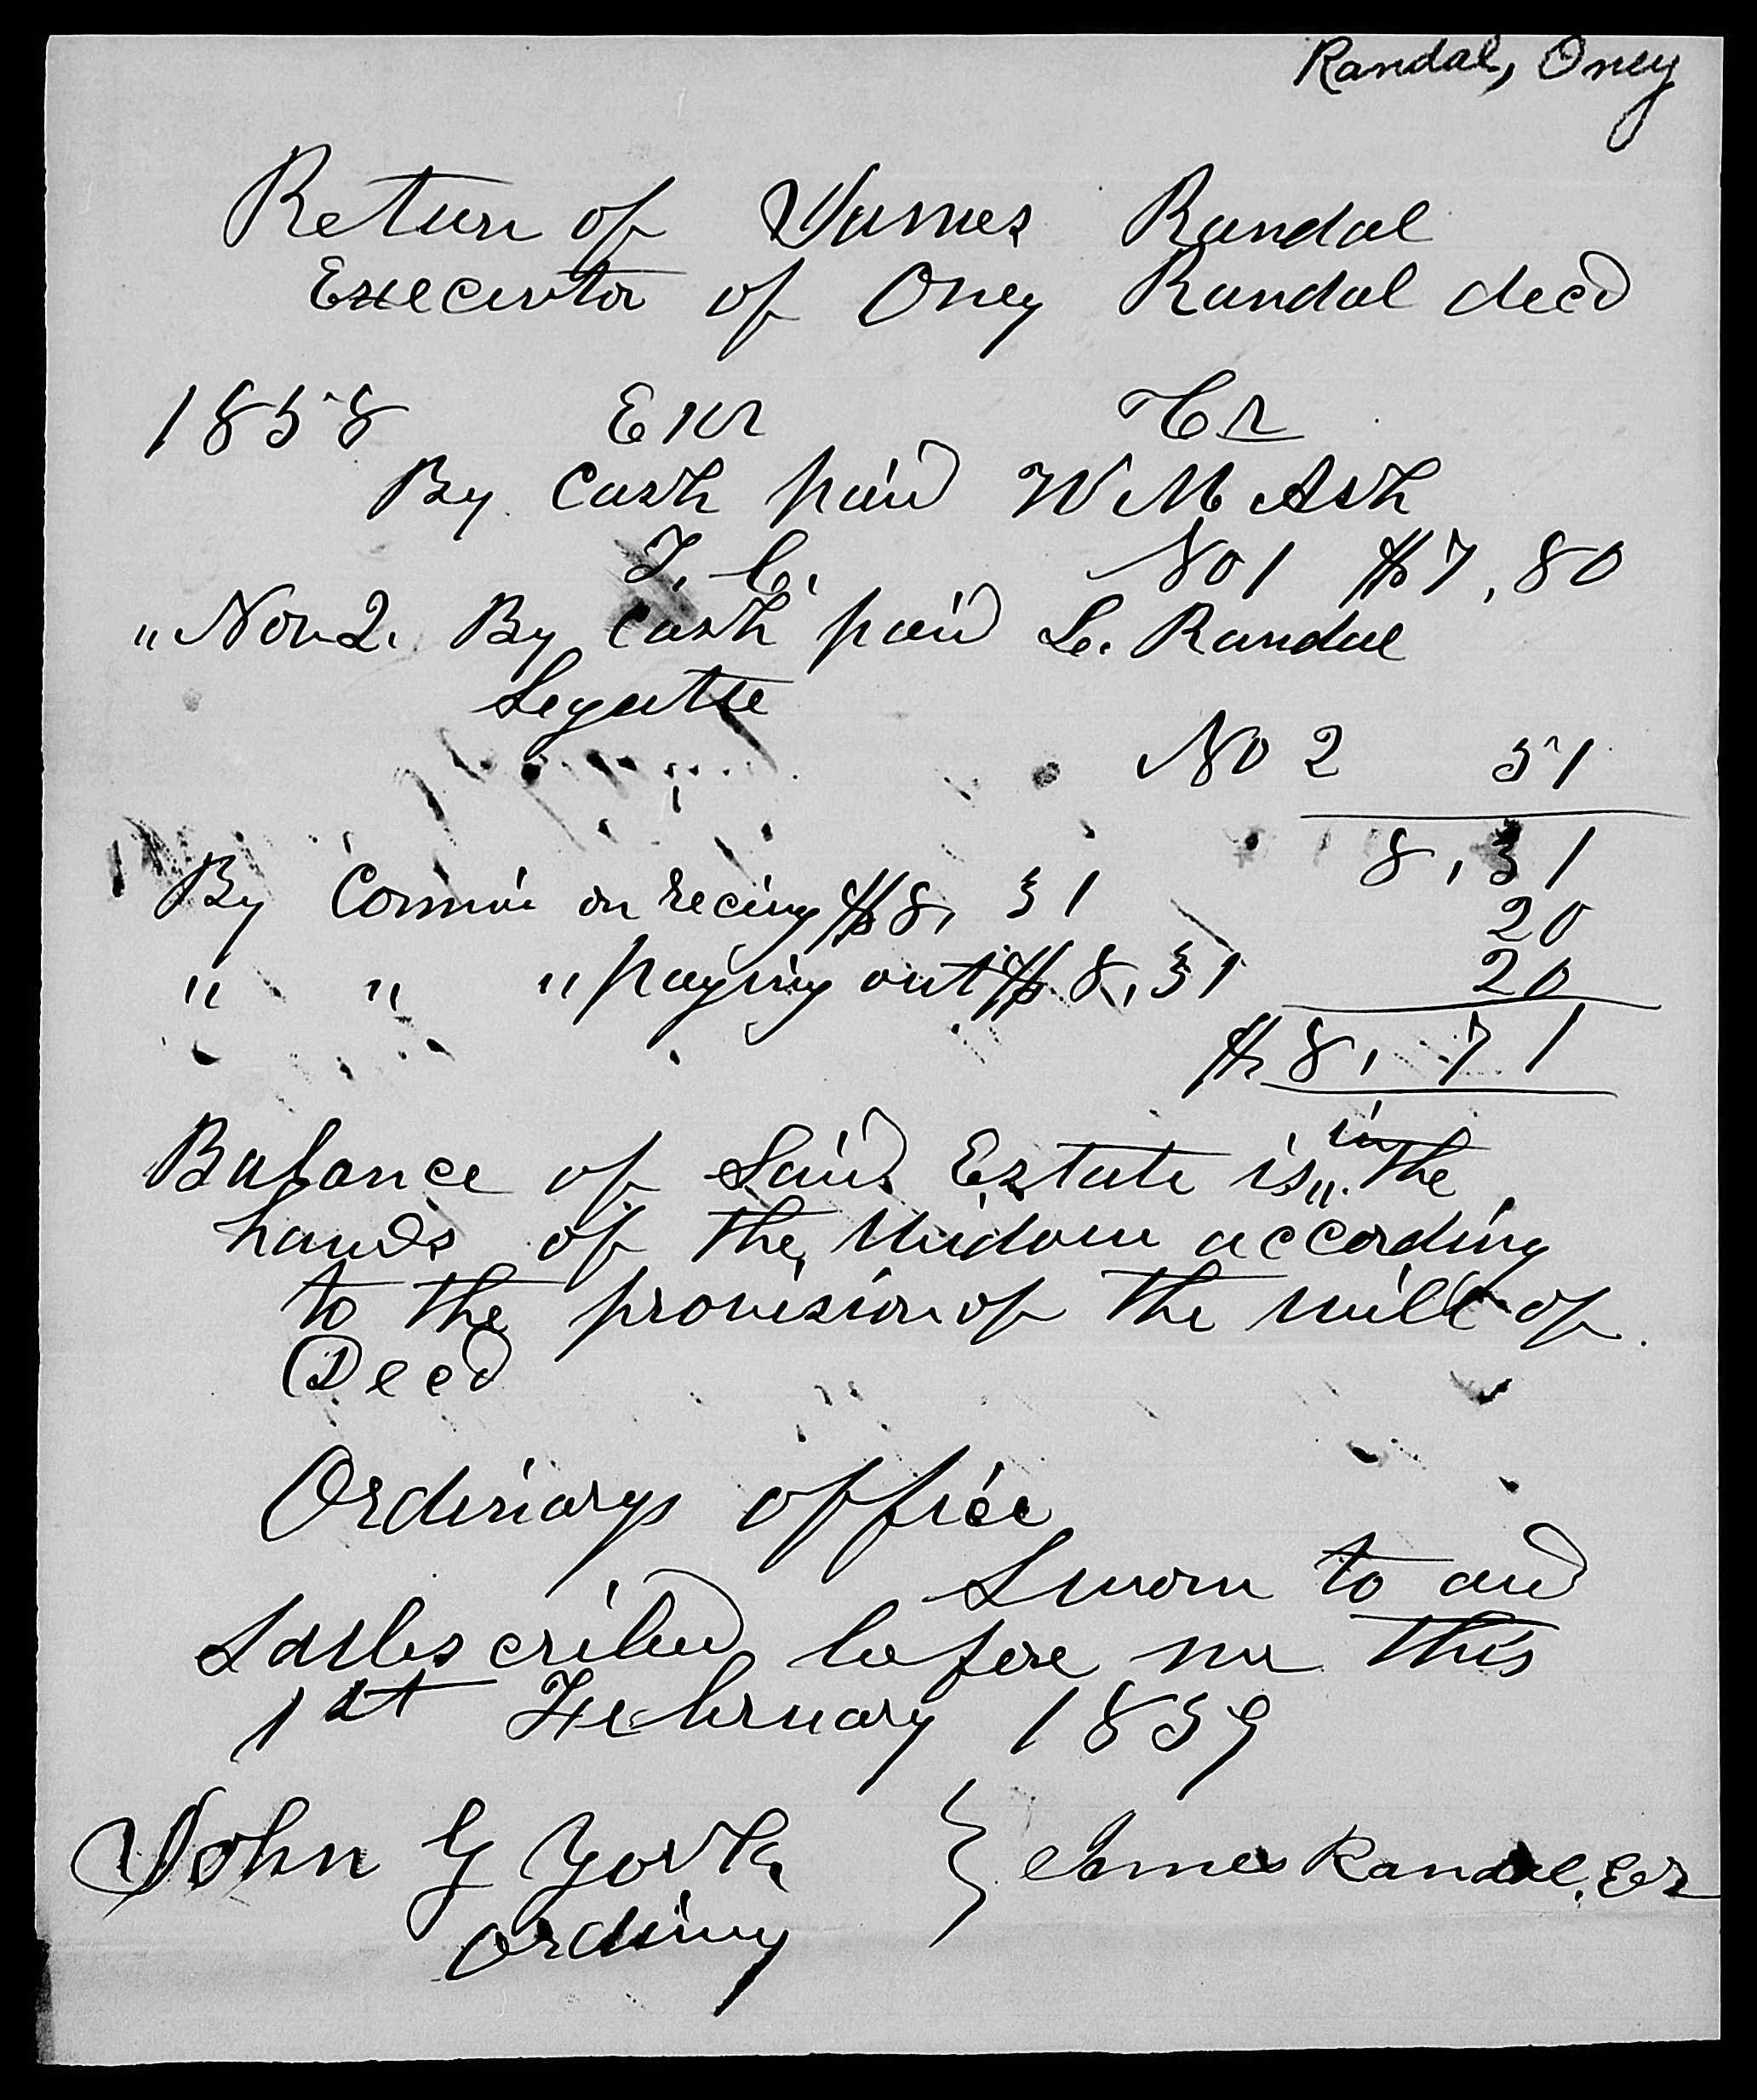 Randal, Oney
Return of James Randal
Executor of Oney Randal decd
1858 Exr Cr
By Cash paid W M Ash
T. C. No 1 $7,80
" Nov 2. By Cash paid L. Randal
Legattee
No 2 51
8,31
By Commis on recing $8,31 20
" " " paying out $8,31 20
$8,71
Balance of Said Estate is in the
hands of the Widow according
to the provision of the will of
Decd
Ordinarys office
Sworn to and
Subscribed before me this
1st February 1859
John G York } James Randal, Exr
Ordinary